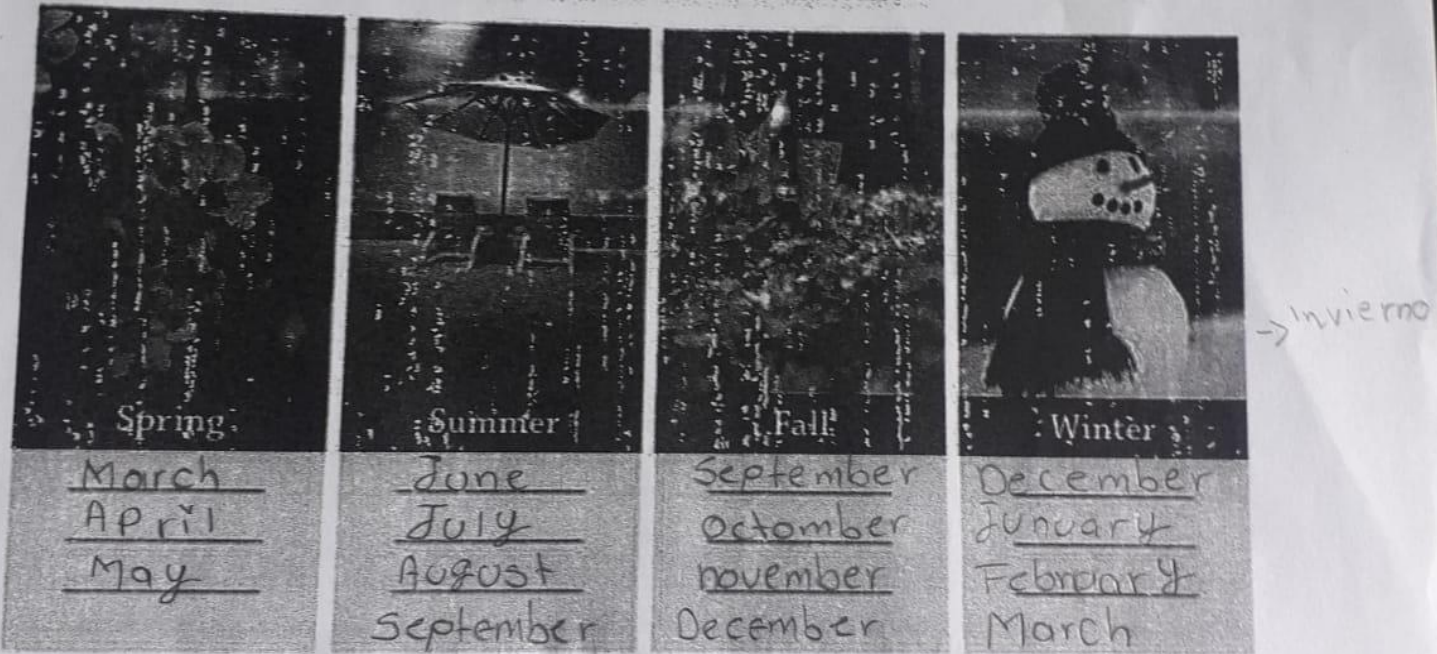 Spring
March
April
May
Summer
June
July
August
September
Fall
September
octomber
november
December
Winter
December
Junuary
February
March
→ invierno